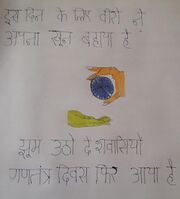 इस दिन के लिए वीरो ने
अपना खून बहाया है
झूम उठो देशवासियों
गणतंत्र दिवस फिर आया है